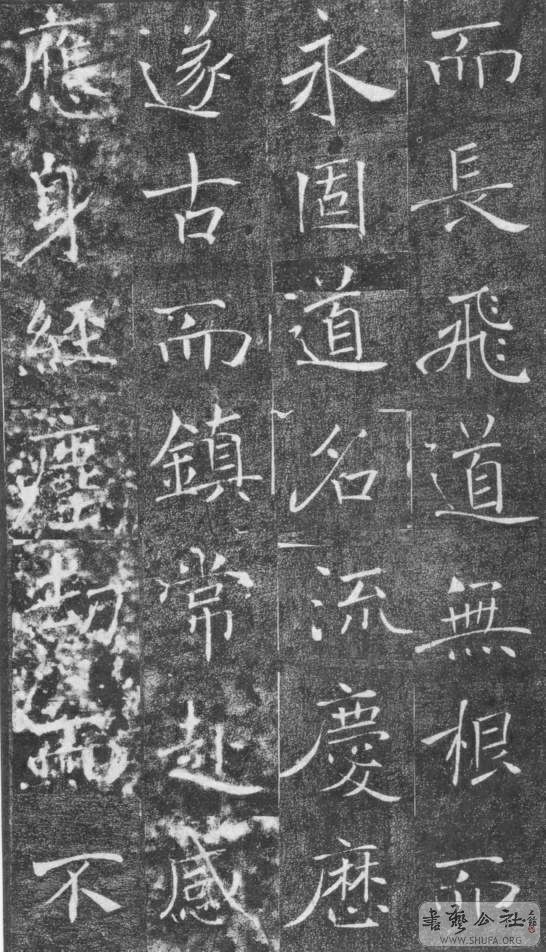 而長飛道無根而
永固道名流慶歴
遂古而鎮常赴感
應身經塵劫而不
書藝公社
WWW.SHUFA.ORG